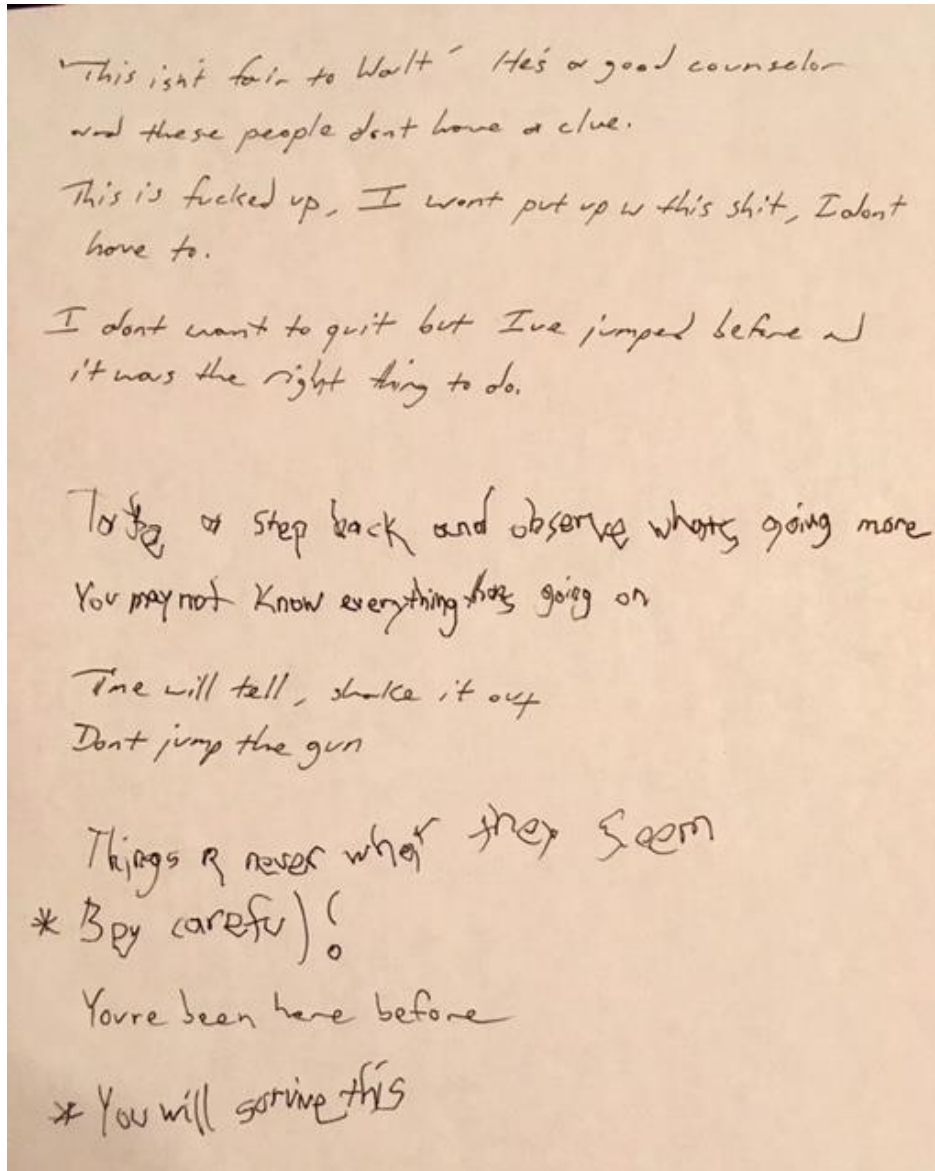 "This isn't fair to Walt" He's a good counselor
and these people dont have a clue.
This is fucked up, I wont put up w this shit, I dont
have to.
I dont want to quit but Ive jumped before and
it was the right thing to do.
Take a step back and observe whats going more
You may not know everything thats going on
Time will tell, shake it out
Dont jump the gun
Things R never what they seem
* Bey careful!
Youre been here before
* You will sorvive this